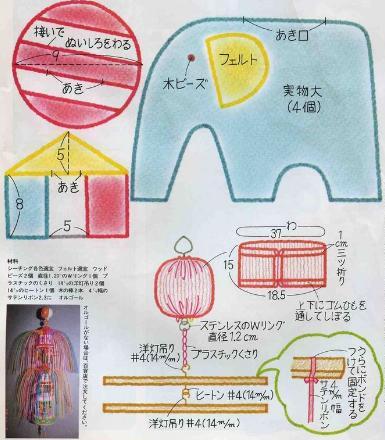 接いで
ぬいしろをわる
9
あき
5
あき
8
5
あき口
フェルト
木ビーズ
実物大
(4個)
材料
シーチング各色適宜 フェルト適宜 ウッド
ビーズ2個 直径1.2㌢のWリング1個 プ
ラスチックのくさり 14㍉の洋灯吊り2個
14㍉のヒートン1個 木の棒2本 4㍉幅の
サテンリボン2.3㍍ オルゴール
オルゴールがない場合は、百貨店で注文してください。
わ
37
15
18.5
1cm三ッ折り
上下にゴムひもを
通してしぼる
ステンレスのWリング
直径1.2cm
プラスチックくさり
洋灯吊り
#4(14m/m)
ヒートン#4(14m/m)
洋灯吊り#4(14m/m)
うらにボンドを
つけて固定する
4m/m幅
サテンリボン